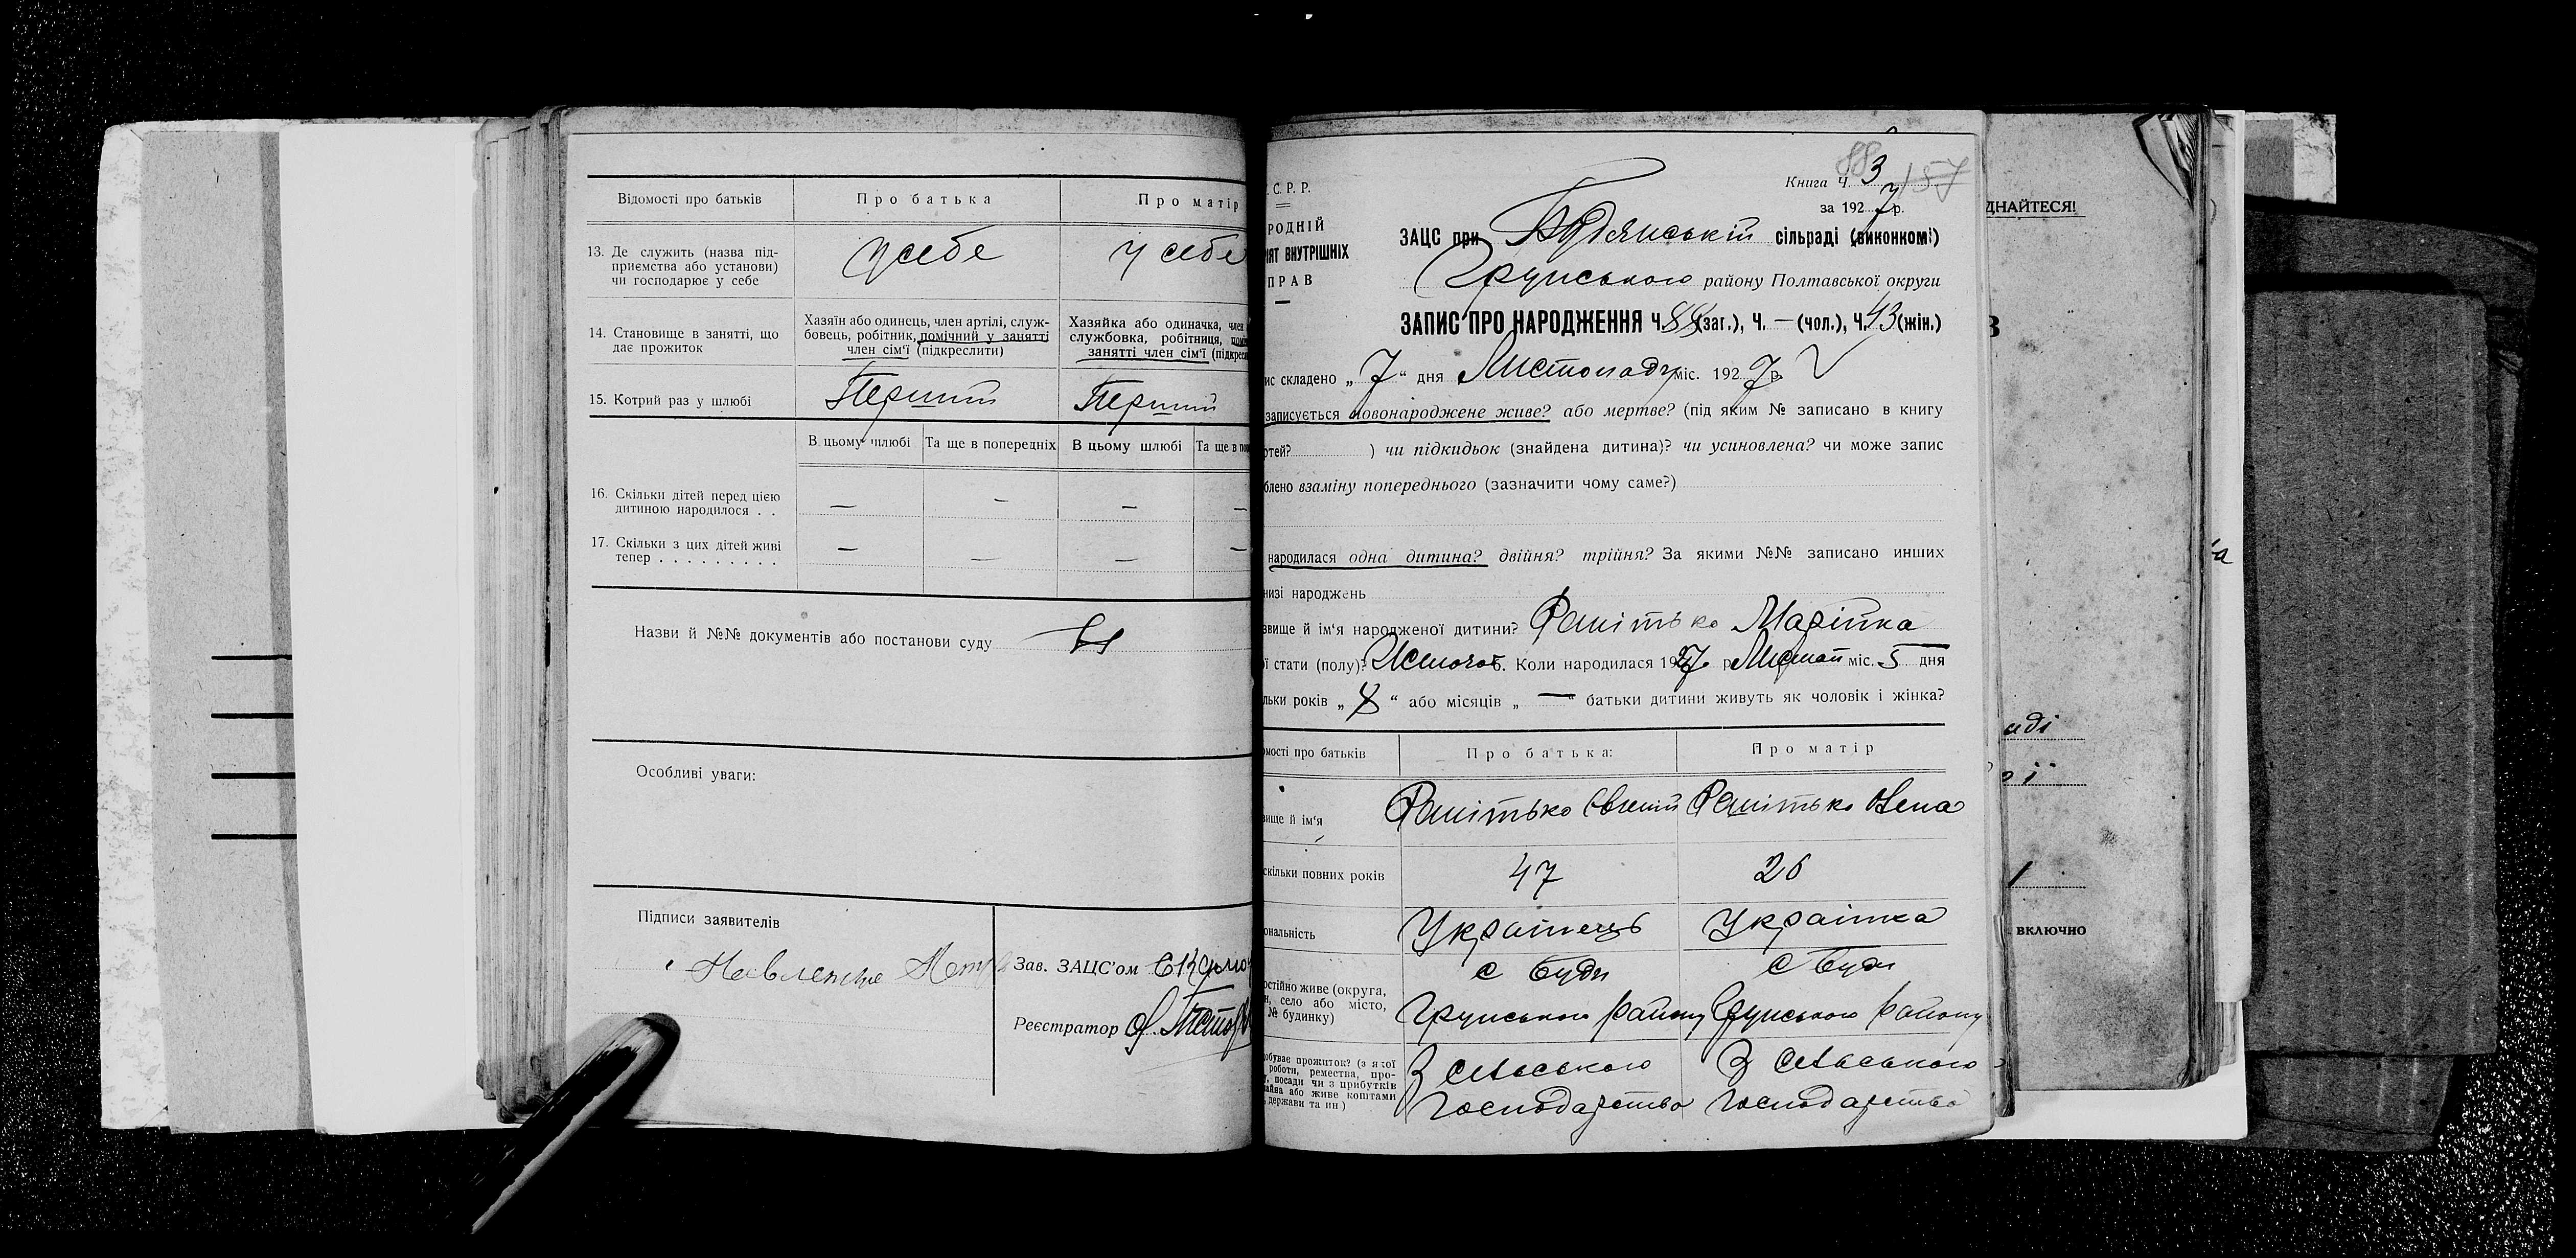 Відомості про батьків
Про батька
Про матір
13. Де служить (назва під-
приємства або установи)
чи господарює у себе
у себе
у себе
14. Становище в занятті, що
дає прожиток
Хазяїн або одинець, член артілі, служ-
бовець, робітник, помічний у занятті
член сім'ї (підкреслити)
Хазяйка або одиначка, член
службовка, робітниця,
занятті член сім'ї
15. Котрий раз у шлюбі
Перший
Перший
В цьому шлюбі
Та ще в попередніх
В цьому шлюбі
Та ще в
16. Скільки дітей перед цією
дитиною народилося . .
— — — —
17. Скільки з цих дітей живі
тепер . . . . . . . . .
— — — —
Назви й №№ документів або постанови суду
Особливі уваги:
Підписи заявителів
Зав. ЗАЦС'ом
Реєстратор
С. Р. Р.
РОДНІЙ
ІЯТ ВНУТРІШНІХ
ПРАВ
88
157
Книга Ч. 3
за 1927 р.
ЗАЦС при сільраді (виконкомі)
Грунського району Полтавської округи
ЗАПИС ПРО НАРОДЖЕННЯ Ч. 88 (заг.), Ч. — (чол.), Ч. 43 (жін.)
ис складено „7“ дня Листопаду міс. 1927 р.
записується новонароджене живе? або мертве? (під яким № записано в книгу
ртей? ) чи підкидьок (знайдена дитина)? чи усиновлена? чи може запис
блено взаміну попереднього (зазначити чому саме?)
народилася одна дитина? двійня? трійня? За якими №№ записано инших
низі народжень
звище й ім'я народженої дитини? Рашітько Марійка
ї стати (полу)? Жіночої 6. Коли народилася 1927 р. Листоп міс. 5 дня
льки років „ “ або місяців „—“ батьки дитини живуть як чоловік і жінка?
омості про батьків
Про батька:
Про матір
вище й ім'я
Рашітько Євгеній
Рашітько Олена
скільки повних років
47
26
ональність
Українець
Українка
остійно живе (округа,
н, село або місто,
№ будинку)
с Буди
Грунського району
с Буди
Грунського району
обуває прожиток? (з якої
роботи, ремества, про-
, посади чи з прибутків
айна або живе коштами
держави та ин)
З сільського
господарства
З сільського
господарства
ДНАЙТЕСЯ!
аді
ої
ВКЛЮЧНО